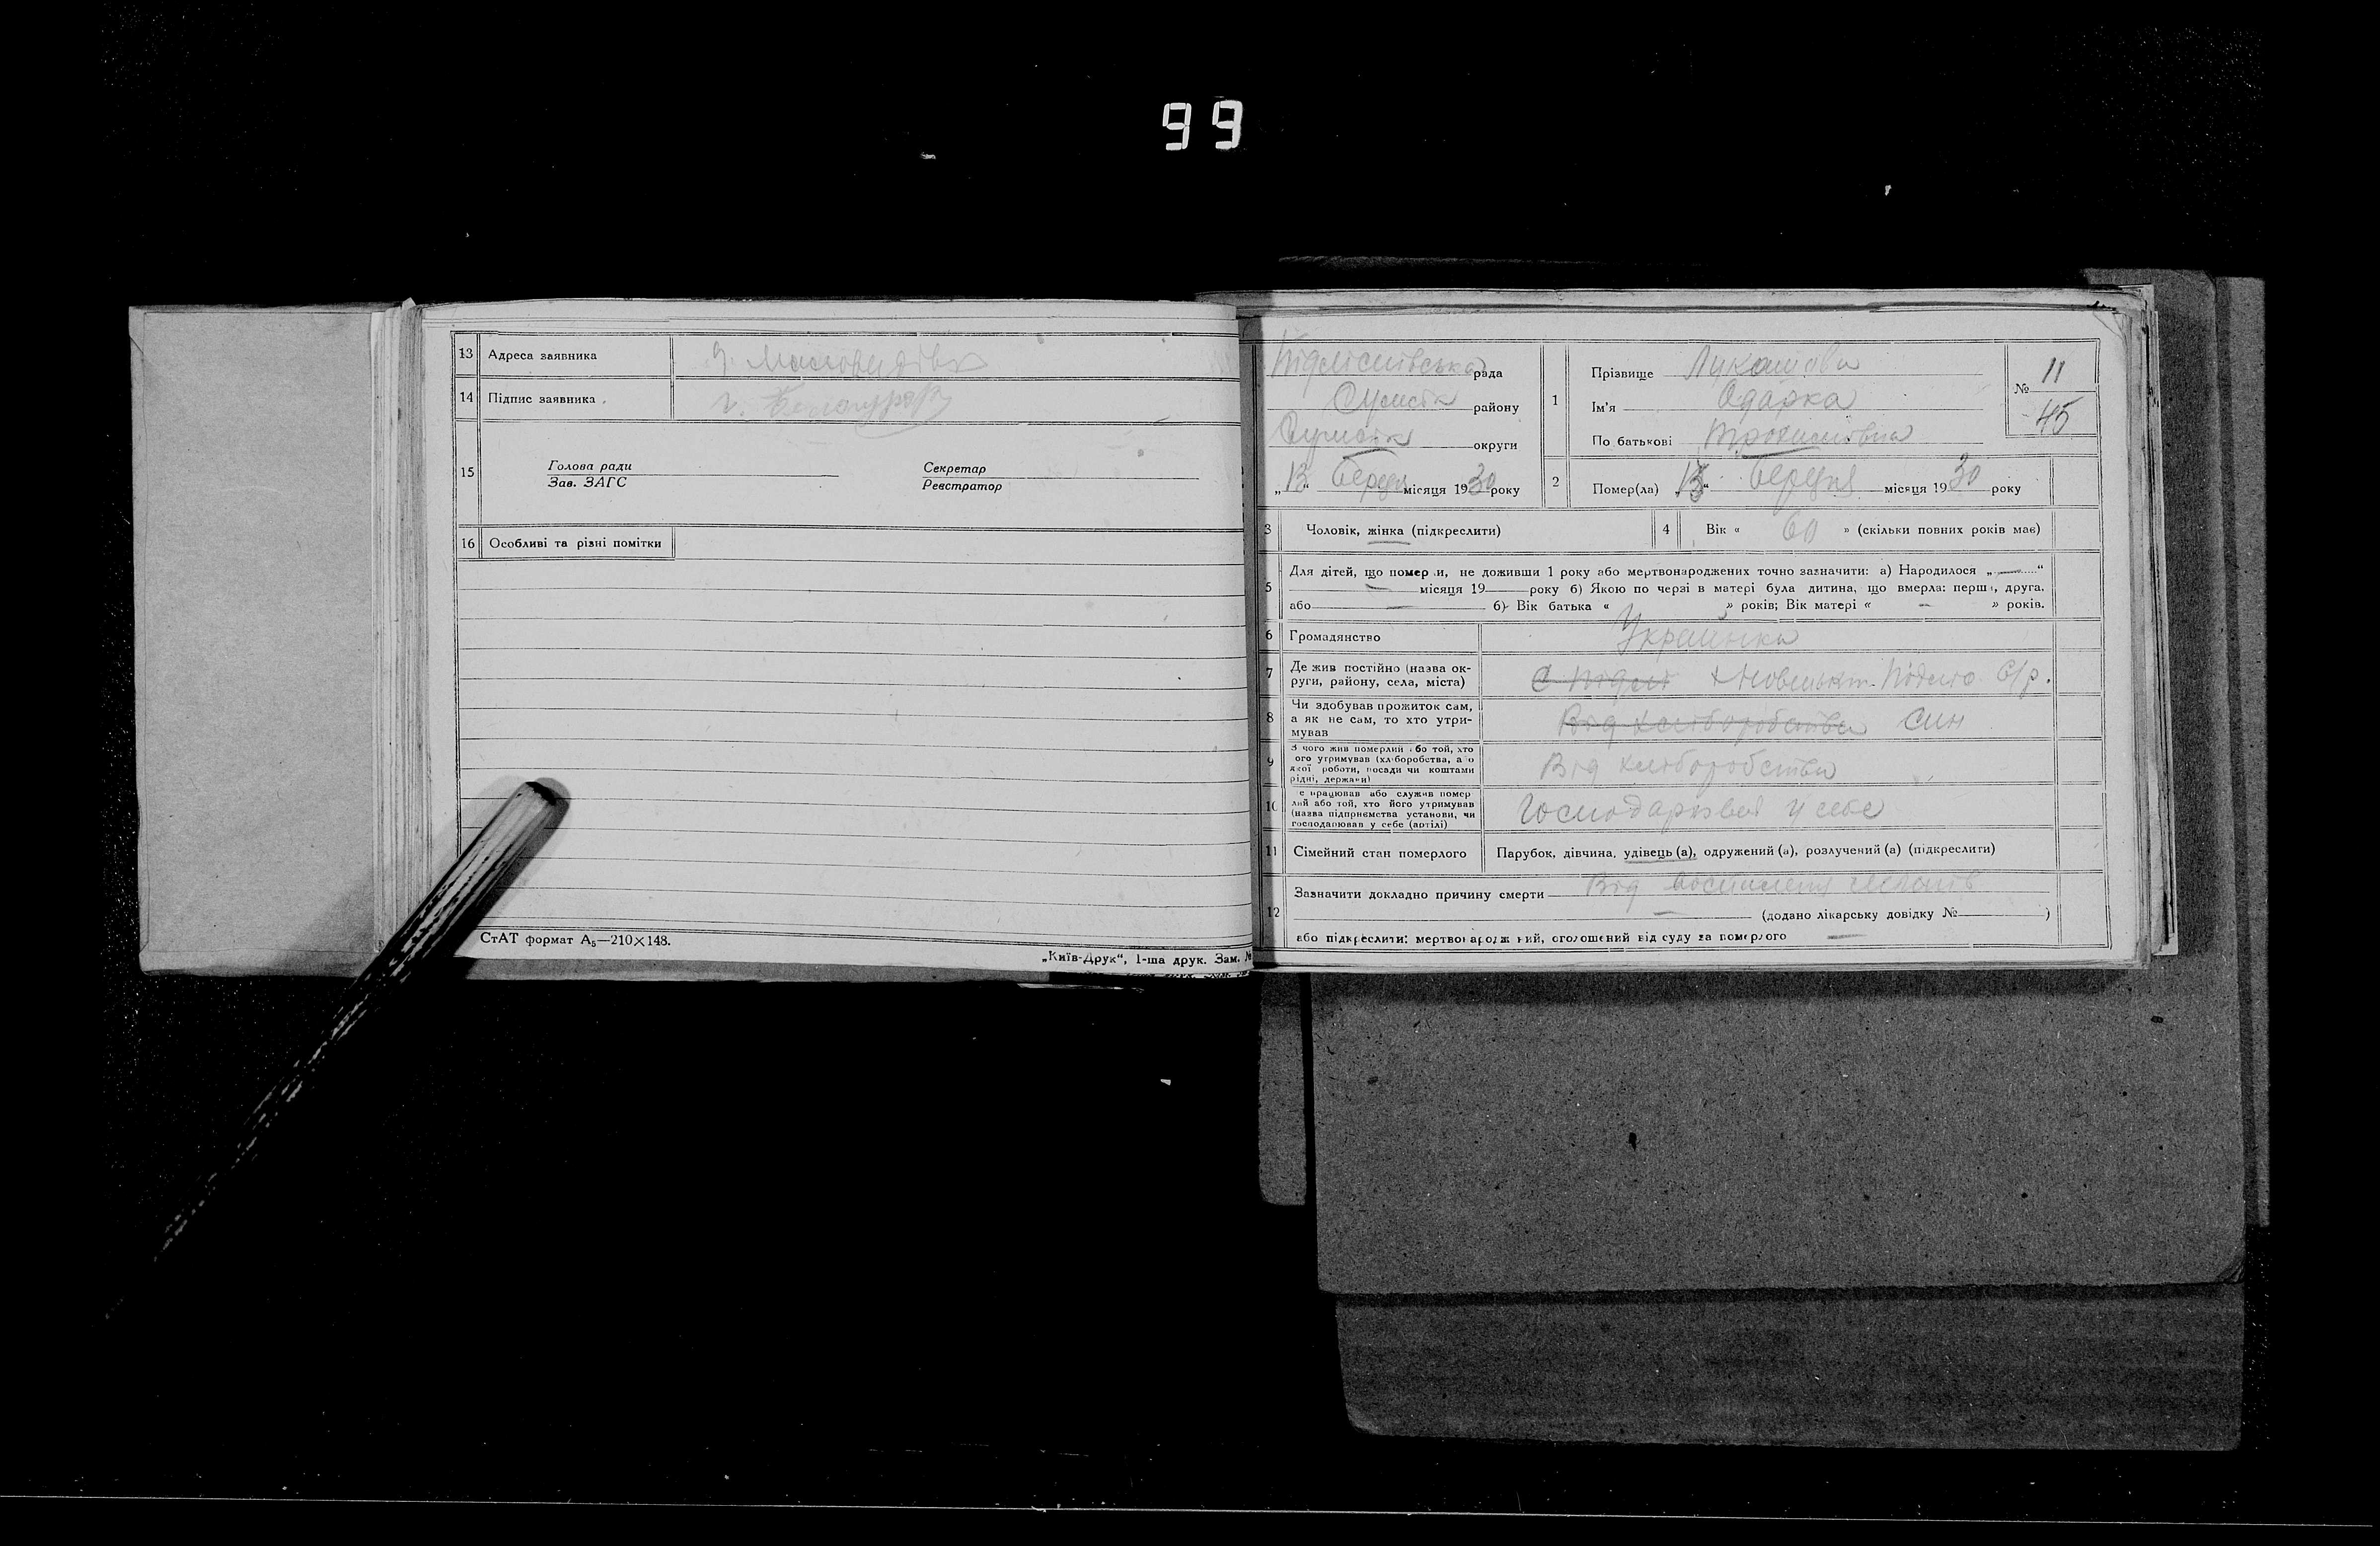 99
13 Адреса заявника
14 Підпис заявника
15 Голова ради
Зав. ЗАГС
Секретар
Реєстратор
16 Особливі та різні помітки
СтАТ формат А₅—210×148.
„Київ-Друк“, 1-ша друк. Зам. №
Підліснівська рада
Сумськ району
Сумськ округи
„13“ березн місяця 1930 року
1 Прізвище Лукашова
Ім'я Одарка
По батькові
№ 11
45
2 Помер(ла) „13“ березня місяця 1930 року
3 Чоловік, жінка (підкреслити)
4 Вік « 60 » (скільки повних років має)
5 Для дітей, що померли, не доживши 1 року або мертвонароджених точно зазначити: а) Народилося „—“
— місяця 19 року б) Якою по черзі в матері була дитина, що вмерла: перша, друга,
або — б) Вік батька « » років; Вік матері « — » років.
6 Громадянство Українка
7 Де жив постійно (назва ок-
руги, району, села, міста) С/р.
8 Чи здобував прожиток сам,
а як не сам, то хто утри-
мував Від хліборобства син
9 З чого жив померлий або той, хто
його утримував (хліборобства, або
якої роботи, посади чи коштами
рідні, держави) Від хліборобства
10 Де працював або служив помер
лий або той, хто його утримував
(назва підприємства установи, чи
господарював у себе (артілі) Господарював у себе
11 Сімейний стан померлого Парубок, дівчина, удівець (а), одружений (а), розлучений (а) (підкреслити)
12 Зазначити докладно причину смерти Від
— (додано лікарську довідку № )
або підкреслити: мертвонароджений, оголошений від суду за померлого —